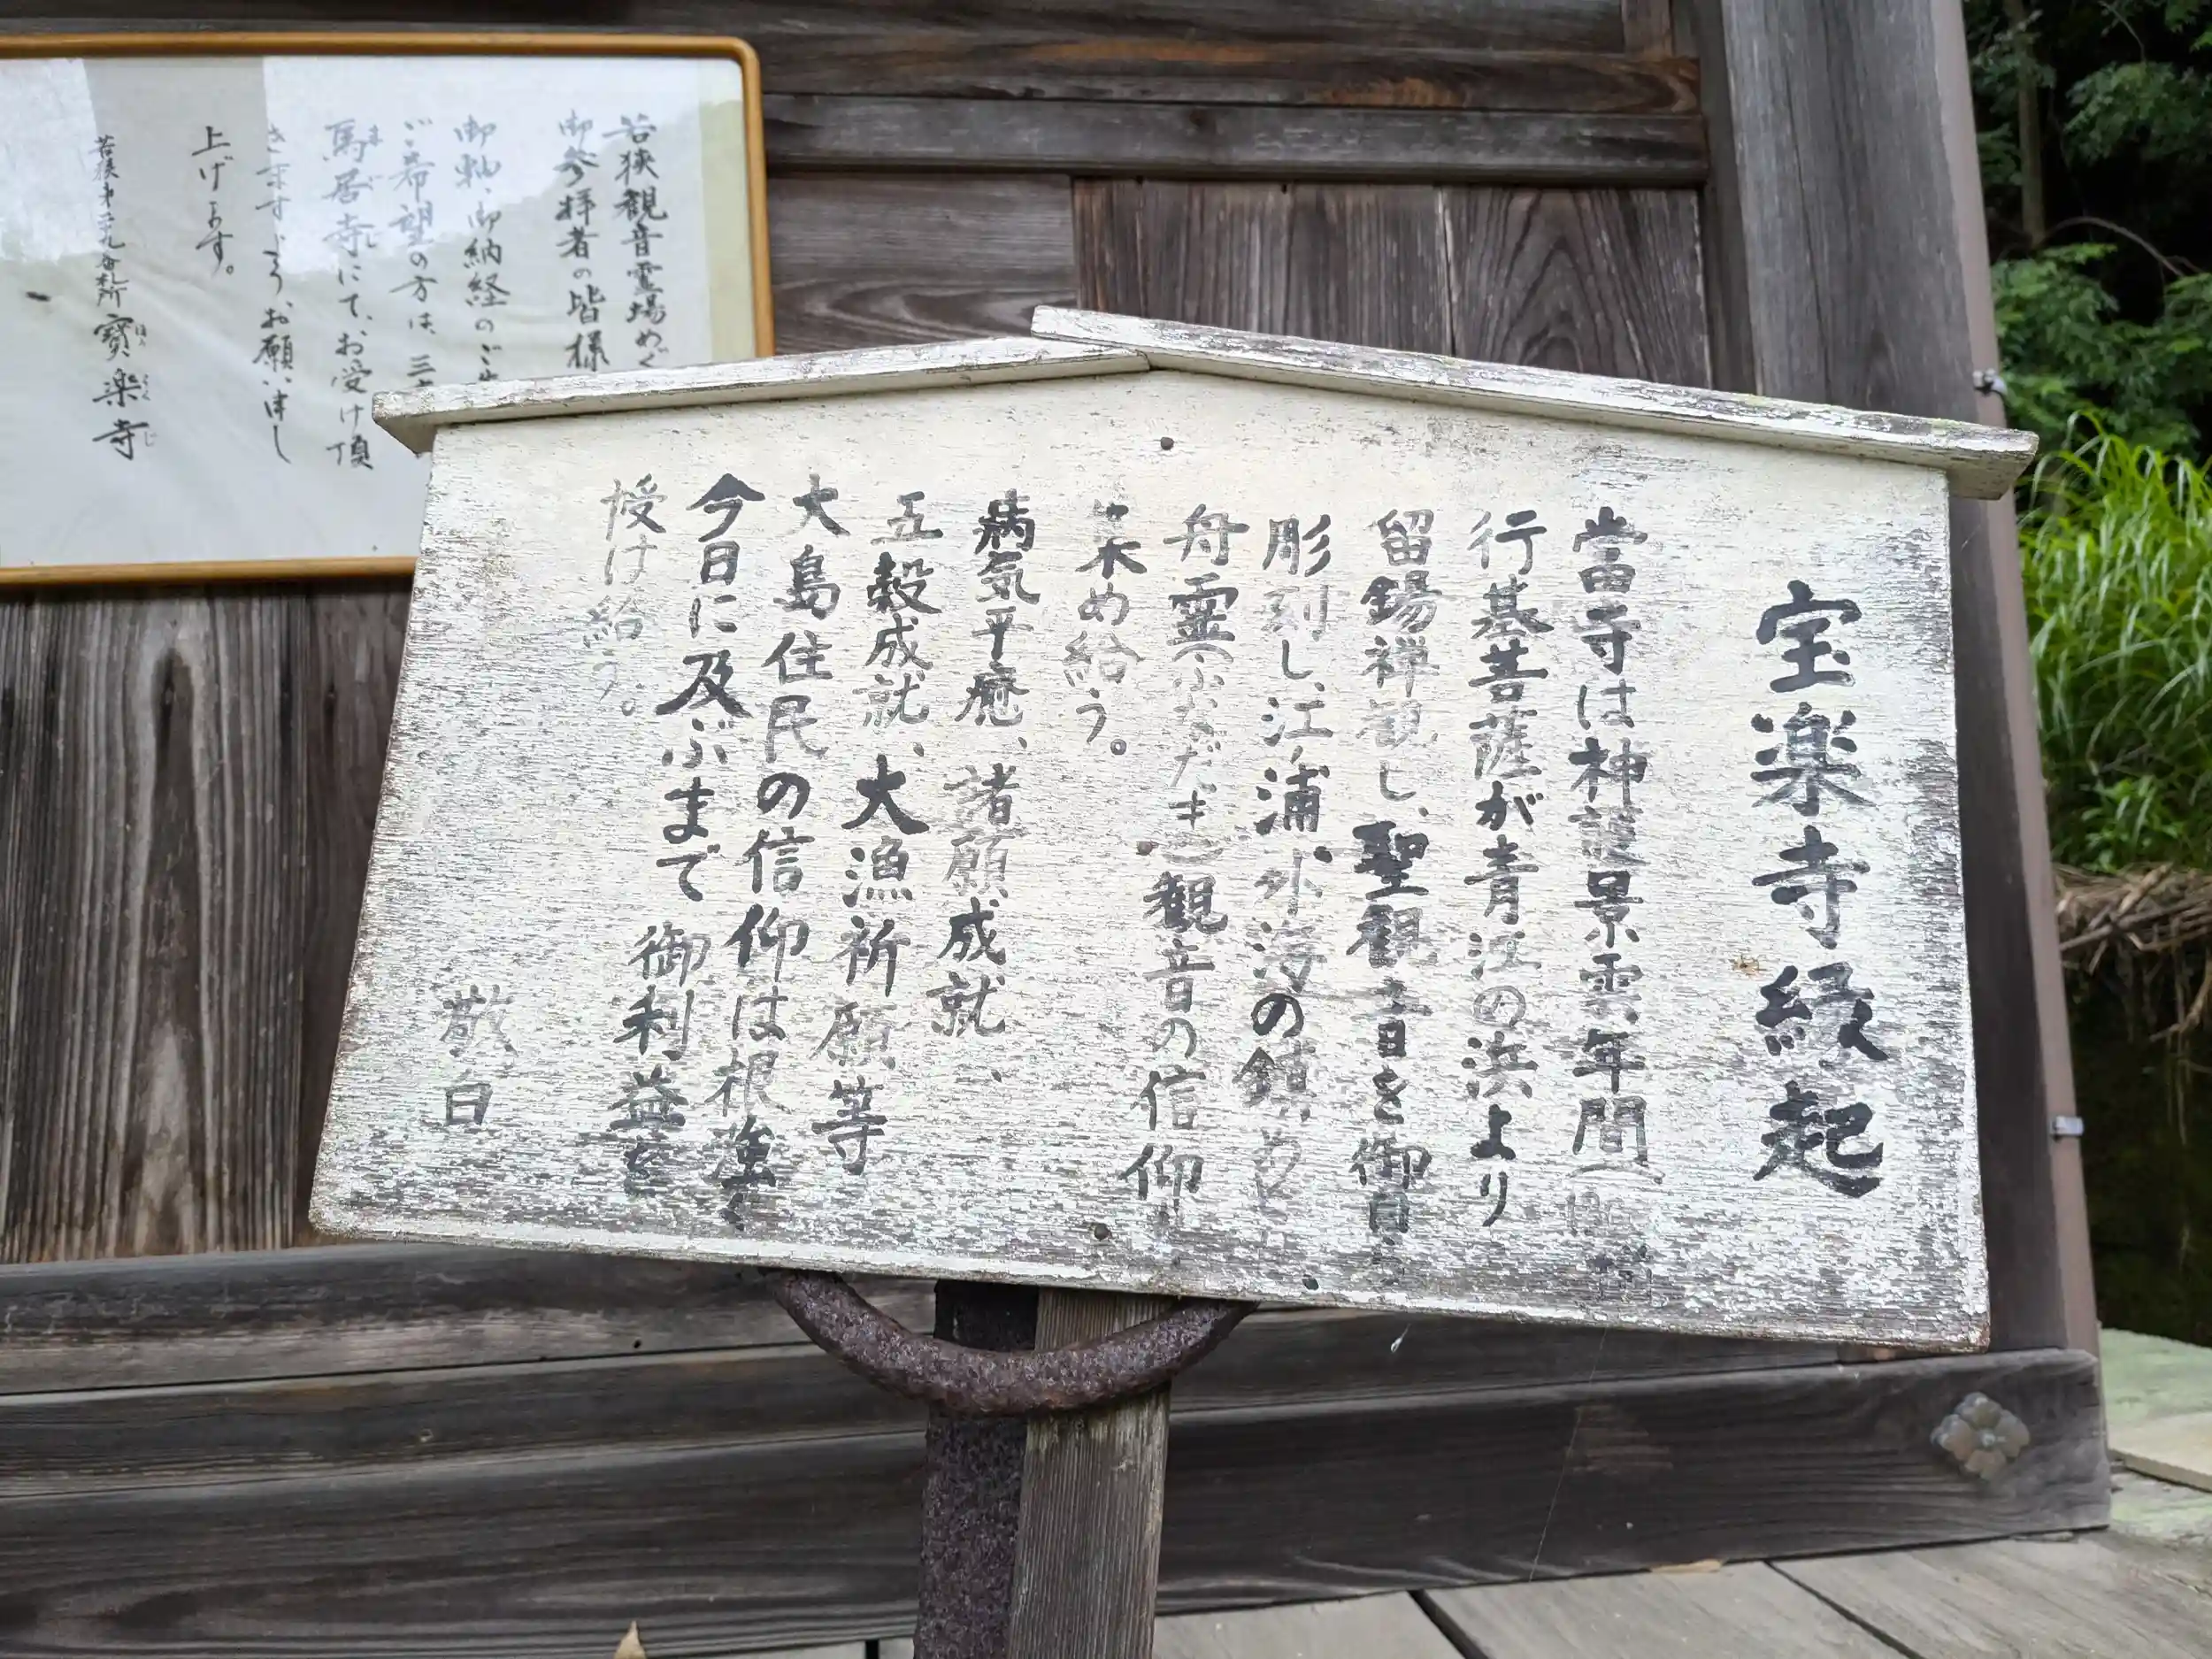 宝楽寺縁起
當寺は神護景雲年間(
行基菩薩が青江の浜より
留錫禅観し、聖観音を御自ら
彫刻し、江ノ浦、外海の鎮めと
舟霊(ふなだま)観音の信仰
集め給う。
病気平癒、諸願成就、
五穀成就、大漁祈願等
大島住民の信仰は根強く
今日に及ぶまで御利益を
授け給う。
敬白
若狭観音霊場めぐ
御参拝者の皆様
御軸、御納経のご
ご希望の方は、三
馬居寺にて、お受け頂
きますよう、お願い申し
上げます。
若狭第三十九番札所 寶楽寺
ま ご じ
ほう らく じ